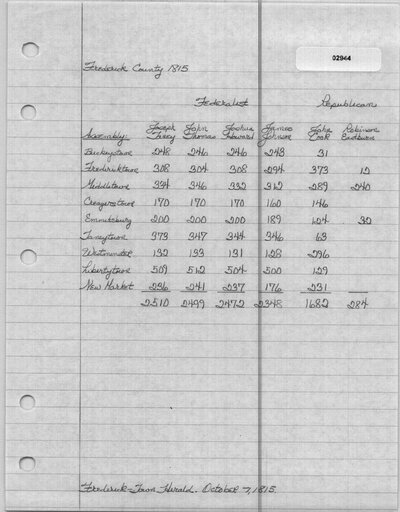 02944
Frederick County 1815
Federalist Republican
Joseph John Joshua James John Robinson
Assembly: Taney Thomas Howard Johnson Cook Eastburn
Buckeystown 248 246 246 243 31
Fredericktown 308 304 308 294 373 12
Middletown 334 346 332 312 289 240
Creagerstown 170 170 170 160 146
Emmitsburg 200 200 200 189 124 32
Taneytown 373 347 344 346 63
Westminster 132 133 131 128 296
Libertytown 509 512 504 500 129
New Market 236 241 237 176 231
2510 2499 2472 2348 1682 284
Frederick-Town Herald. October 7, 1815.